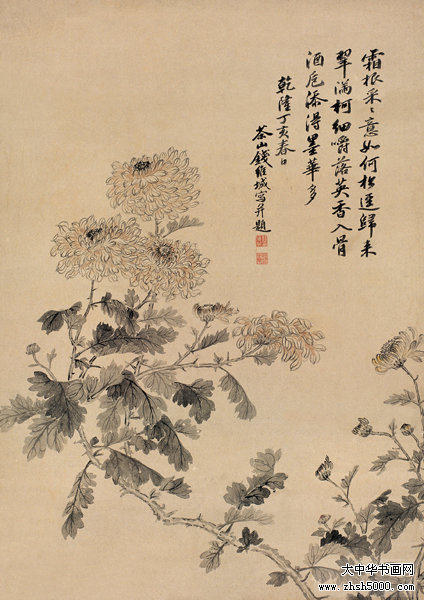 霜根采采意如何松逕歸來
翠滿柯細嚼落英香入骨
酒卮添得墨華多
乾隆丁亥春日
茶山錢維城寫并題
大中华书画网
www.zhsh5000.com